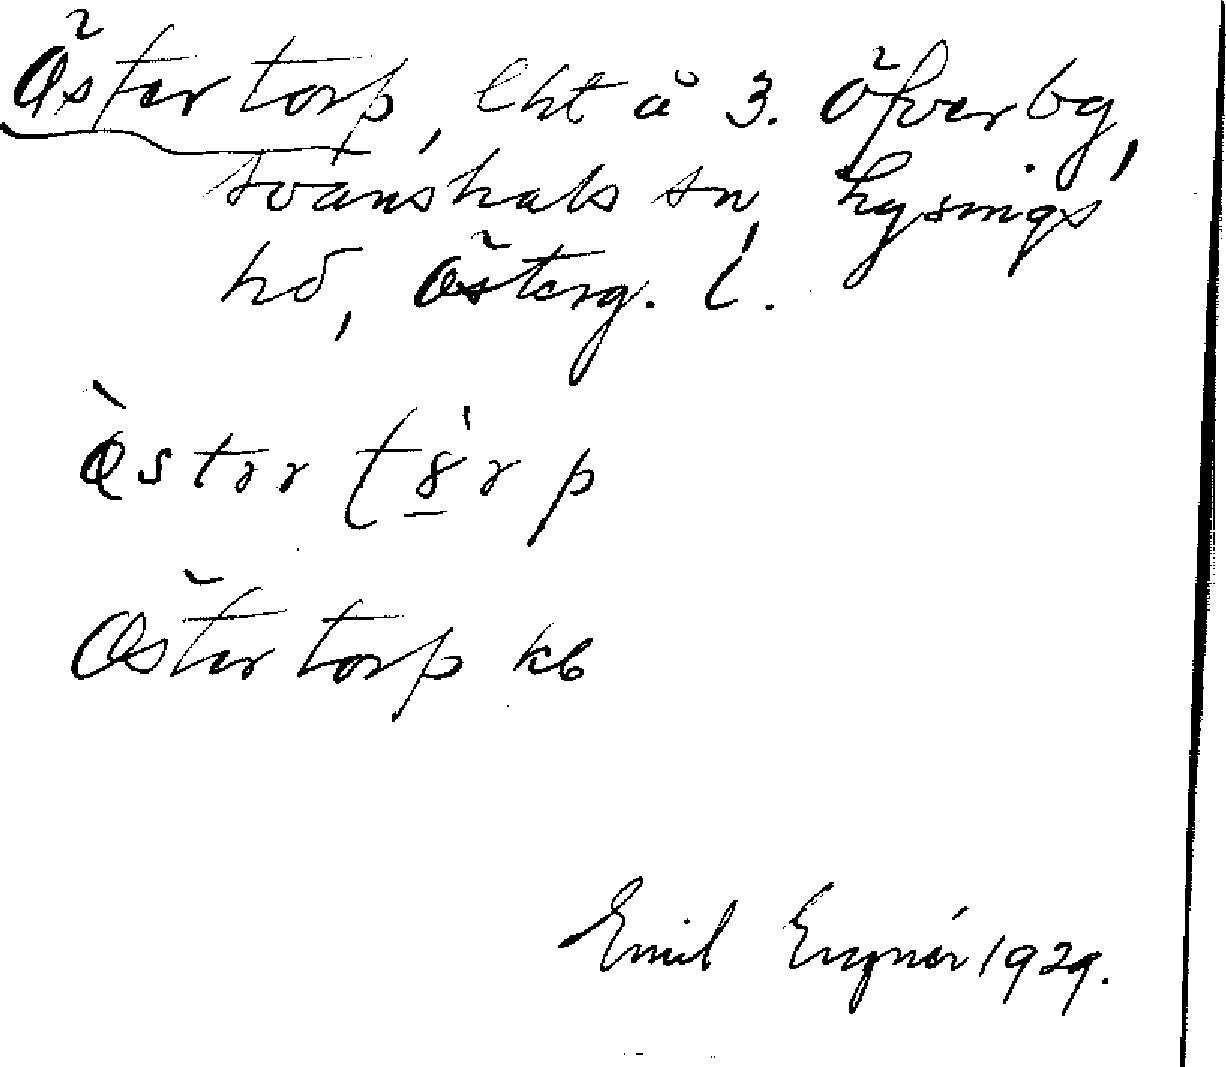 Östertorp, lht å 3. Öfverbg,
Svanshals sn, Lysings
hd, Österg. l.
Östertorp kb
Emil Engnér 1929.